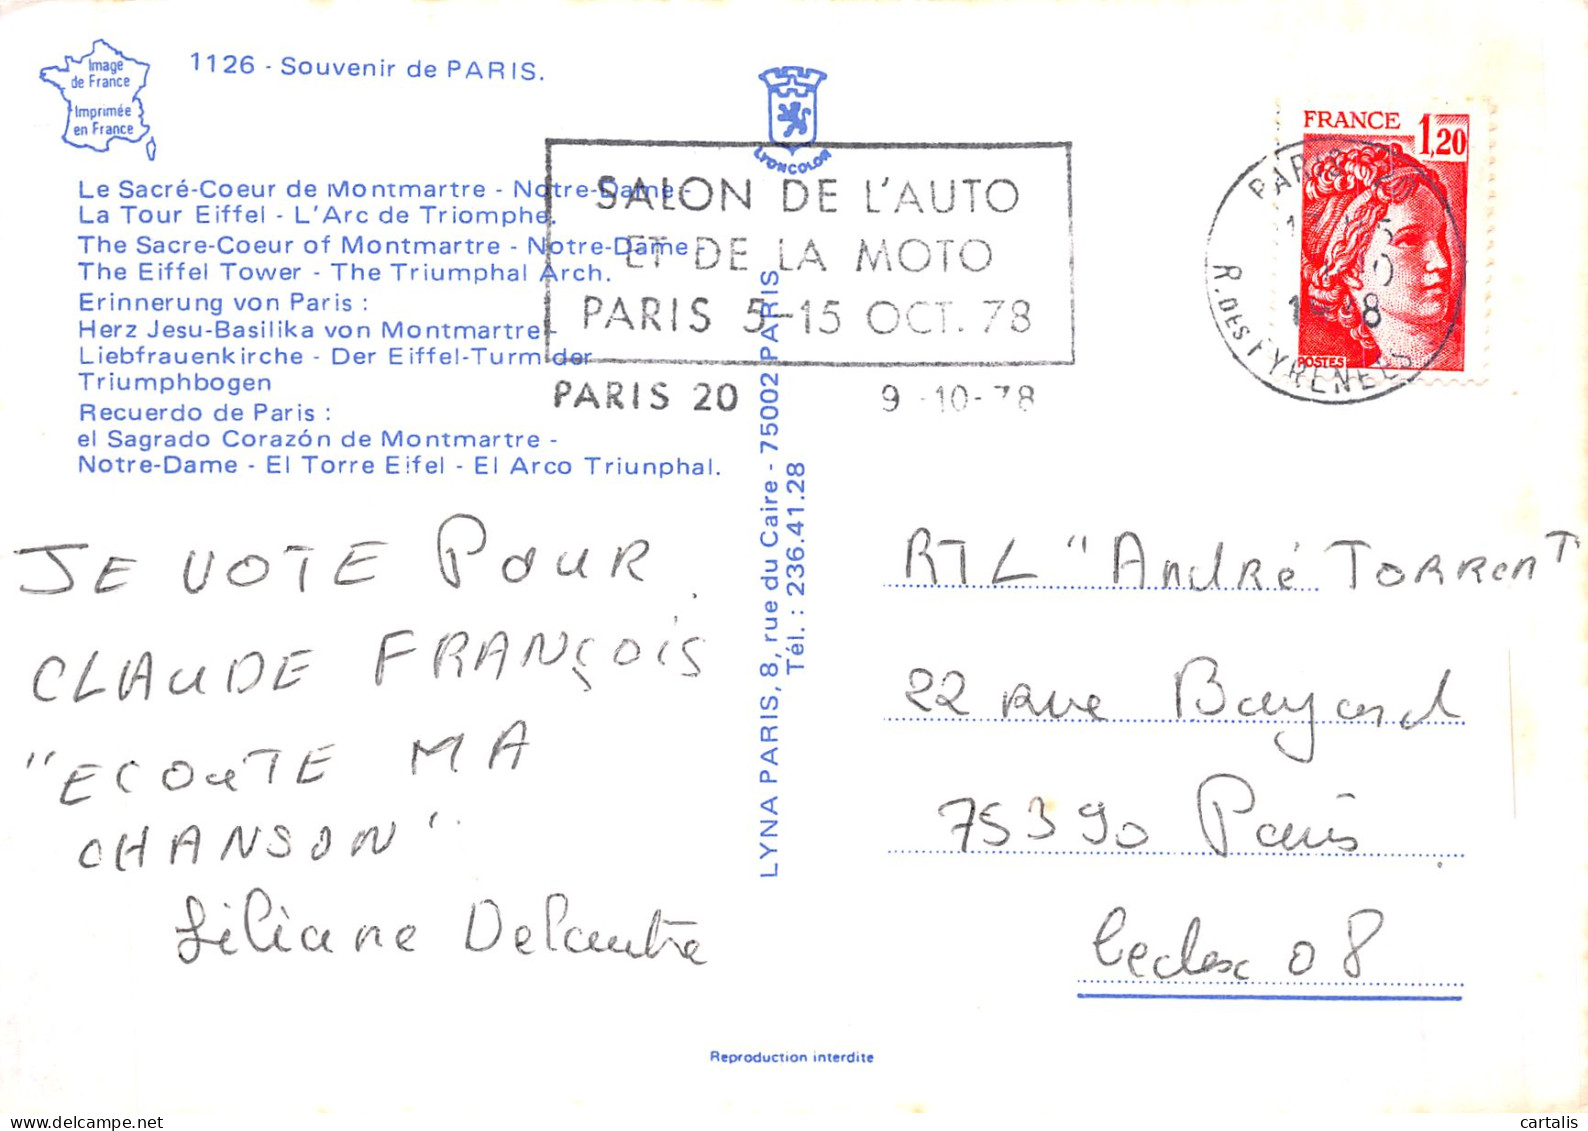 Image
de France
Imprimée
en France
1126 - Souvenir de PARIS.
LYONCOLOR
Le Sacré-Coeur de Montmartre - Notre-Dame -
La Tour Eiffel - L'Arc de Triomphe.
The Sacre-Coeur of Montmartre - Notre-Dame -
The Eiffel Tower - The Triumphal Arch.
Erinnerung von Paris :
Herz Jesu-Basilika von Montmartre -
Liebfrauenkirche - Der Eiffel-Turm der
Triumphbogen
Recuerdo de Paris :
el Sagrado Corazón de Montmartre -
Notre-Dame - El Torre Eifel - El Arco Triunphal.
SALON DE L'AUTO
ET DE LA MOTO
PARIS 5-15 OCT. 78
PARIS 20 9-10-78
FRANCE 1,20
POSTES
PARIS 20
R. DES PYRENEES
LYNA PARIS, 8, rue du Caire - 75002 PARIS
Tél. : 236.41.28
JE VOTE POUR
CLAUDE FRANÇOIS
"ECOUTE MA
CHANSON".
Liliane
RTL "André TORRENT
22 rue Bayard
75390 Paris
Cedex 08
Reproduction interdite
cartalis